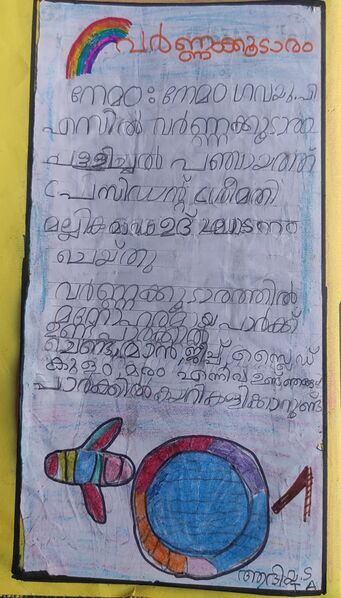 വർണ്ണക്കൂടാരം
നേമം: നേമം ഗവ.യു.പി
എസിൽ വർണ്ണക്കൂടാരം
പള്ളിച്ചൽ പഞ്ചായത്ത്
പ്രസിഡന്റ് ശ്രീമതി
മല്ലിക ഉദ്ഘാടനം
ചെയ്തു
വർണ്ണക്കൂടാരത്തിൽ
മനോഹരമായ പാർക്ക്
ഉണ്ട് പാർക്കിൽ
മാൻ, ജീപ്പ്, സ്ലൈഡ്
കുളം, മരം എന്നിവ ഉണ്ട്
പാർക്കിൽ കളിക്കാനുണ്ട്